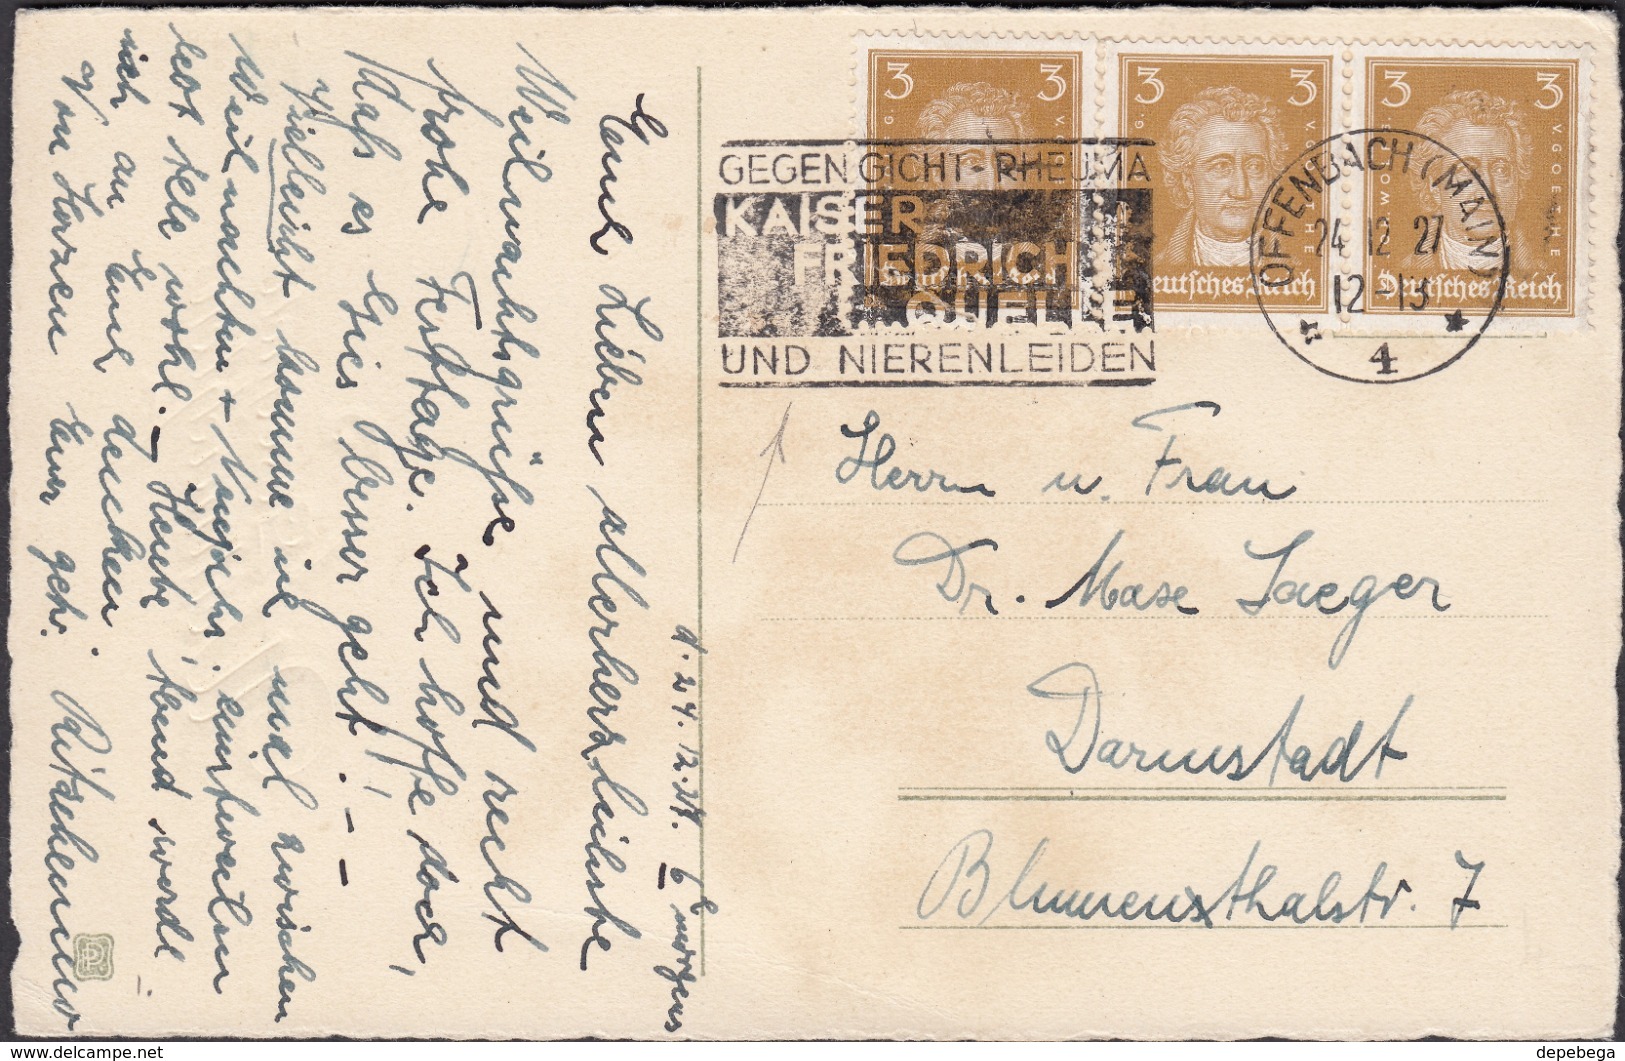 3 3
3 3
3 3
G. V. GOETHE
Deutsches Reich
Deutsches Reich
Deutsches Reich
GEGEN GICHT-RHEUMA
KAISER
FRIEDRICH
QUELLE
UND NIERENLEIDEN
OFFENBACH (MAIN)
24 12 27
12-13
* 4 *
Herrn u. Frau
Dr. Maxe Jaeger
Darmstadt
Blumenthalstr. 7
d. 24. 12. 27. 6 morgens
Euch Lieben allerherzlichste
Weihnachtsgrüsse und recht
frohe Festtage. Ich hoffe doch,
dass es besser geht! --
Vielleicht komme ich mal zwischen
Weihnachten + Neujahr. einstweilen
lebt alle wohl. - Heute Abend werde
ich an Euch denken
Von Herzen Euer getr.
depebega